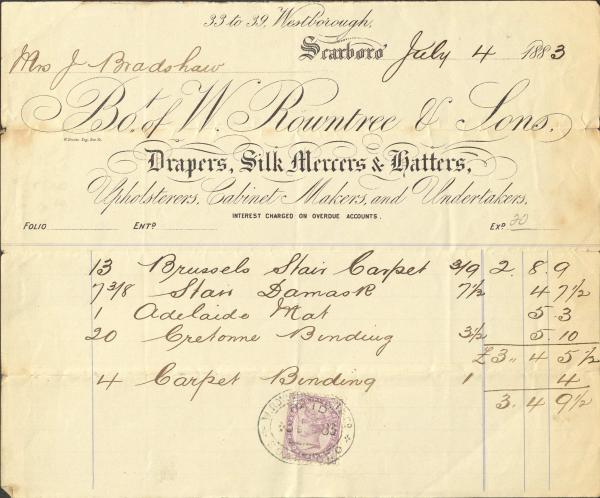 33 to 39, Westborough,
Scarboro' July 4 1883
Mrs J Bradshaw
Bot. of W. Rowntree & Sons,
Drapers, Silk Mercers & Hatters,
Upholsterers, Cabinet Makers, and Undertakers.
INTEREST CHARGED ON OVERDUE ACCOUNTS.
FOLIO ENTD EXD 20
13 Brussels Stair Carpet 3/9 2. 8. 9
7 3/8 Stair Damask 7½ 4 7½
1 Adelaide Mat 5. 3
20 Cretonne Binding 3½ 5. 10
£3,, 4 5½
4 Carpet Binding 1 4
3. 4 9½
PAID